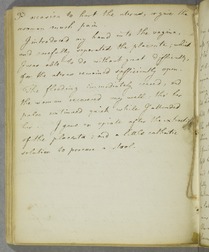 to hurt the uterus, & gave the
woman much pain
I introduced my hand into the vagina,
and carefully separated the placenta, which
I was able to do without great difficulty,
for the uterus remained sufficiently open
The flooding immediately ceased, and
the woman recovered very well. tho her
pulse continued quick while I attended
her. I gave an opiate after the
of the placenta; and a little cathartic
solution to procure a stool.